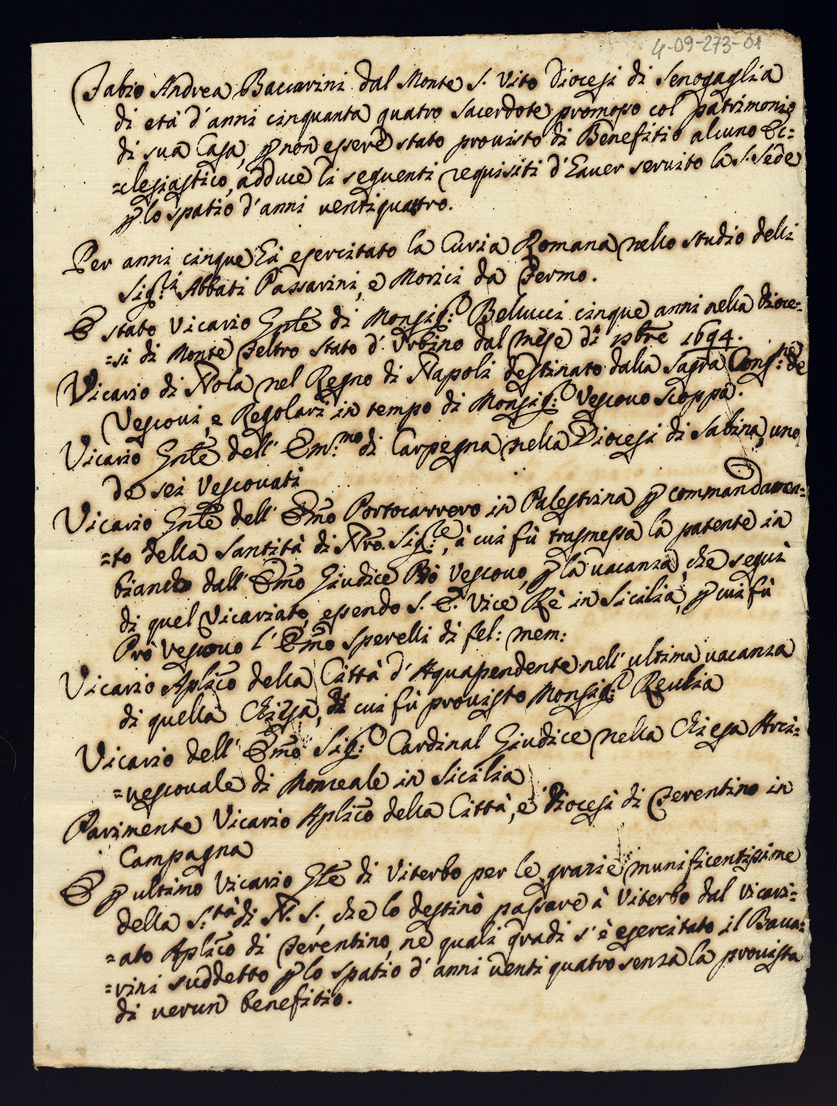 4-09-273-01
Fabio Andrea Baccarini dal Monte S. Vito Diocesi di Senogaglia
di età d'anni cinquanta quatro sacerdote promosso col patrimonio
di sua Casa, p non essere stato provisto di Benefitio alcuno Ec:
=clesiastico, adduce li seguenti requisiti d'Haver servito la S. Sede
p lo spatio d'anni ventiquattro.
Per anni cinque Hà esercitato la Curia Romana nello studio delli
Sig.ri Abbati Passarini, e Morici da Fermo.
È stato Vicario Gnle di Monsig.r Bellucci cinque anni nella dioce=
=si di Monte Feltro stato d'Urbino dal mese di 1694.
Vicario di Nola nel Regno di Napoli destinato dalla Sagra Cong.ne de
Vescovi, e Regolari in tempo di Monsig.r Vescovo Scoppa.
Vicario Gnle dell' Em.mo di Carpegna nella Diocesi di Sabina, uno
de sei Vescovati
Vicario Gnle dell' Emo Portocarrero in Palestrina p commandamen=
=to della Santità di Nro. Sig.re, à cui fù trasmessa la patente in
bianco dall' Emo Giudice Prò Vescovo, p la vacanza, che seguì
di quel Vicariato, essendo S. E. Vice Rè in Sicilia, p cui fù
Prò Vescovo l'Emo Sperelli di fel: mem:
Vicario Aplico della Città d'Aquapendente nell' ultima vacanza
di quella Chiesa, di cui fù provisto Monsig.r
Vicario dell' Emo Sig.r Cardinal Giudice nella Chiesa Arci=
=vescovale di Monreale in Sicilia
Parimente Vicario Aplico della Città, e diocesi di Ferentino in
Campagna
E p ultimo Vicario Gle di Viterbo per le grazie munificentissime
della S.tà di N. S., che lo destinò passare à Viterbo dal vicari=
=ato Aplico di Ferentino, ne quali gradi s'è esercitato il Bacca=
=rini suddetto p lo spatio d'anni venti quatro senza la provista
di verun benefitio.